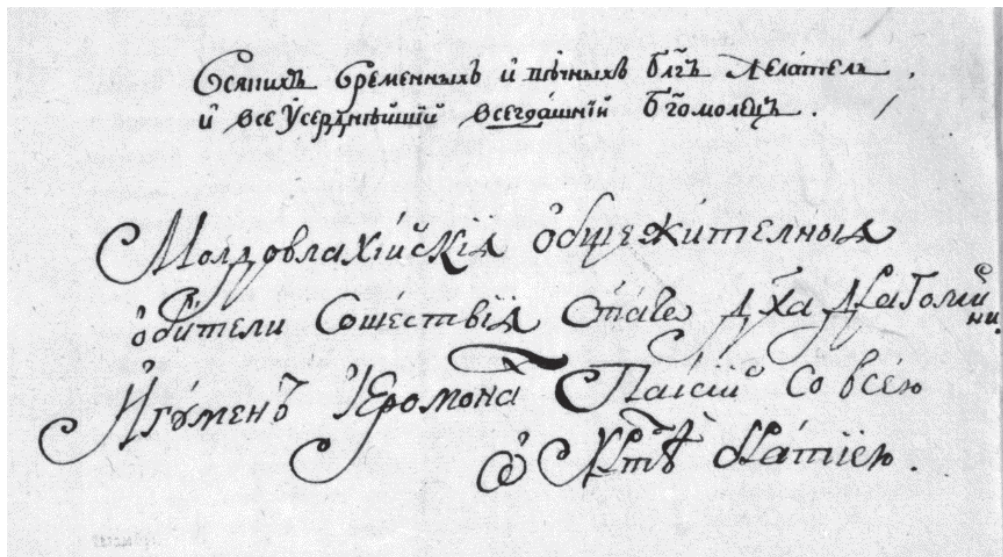 Всяпихъ временныхъ и вѣчныхъ блгъ желатель.
и всеѹсерднѣйшїй всегдашнїй бгомолецъ.
Молдовлахїйскїѧ ѻбщежителныѧ
ѻбители Сошествїѧ Стаго Дха Драгомирни.
Игѹменъ Їеромонах Паисїй со всею
ѡ Хртѣ братїею.